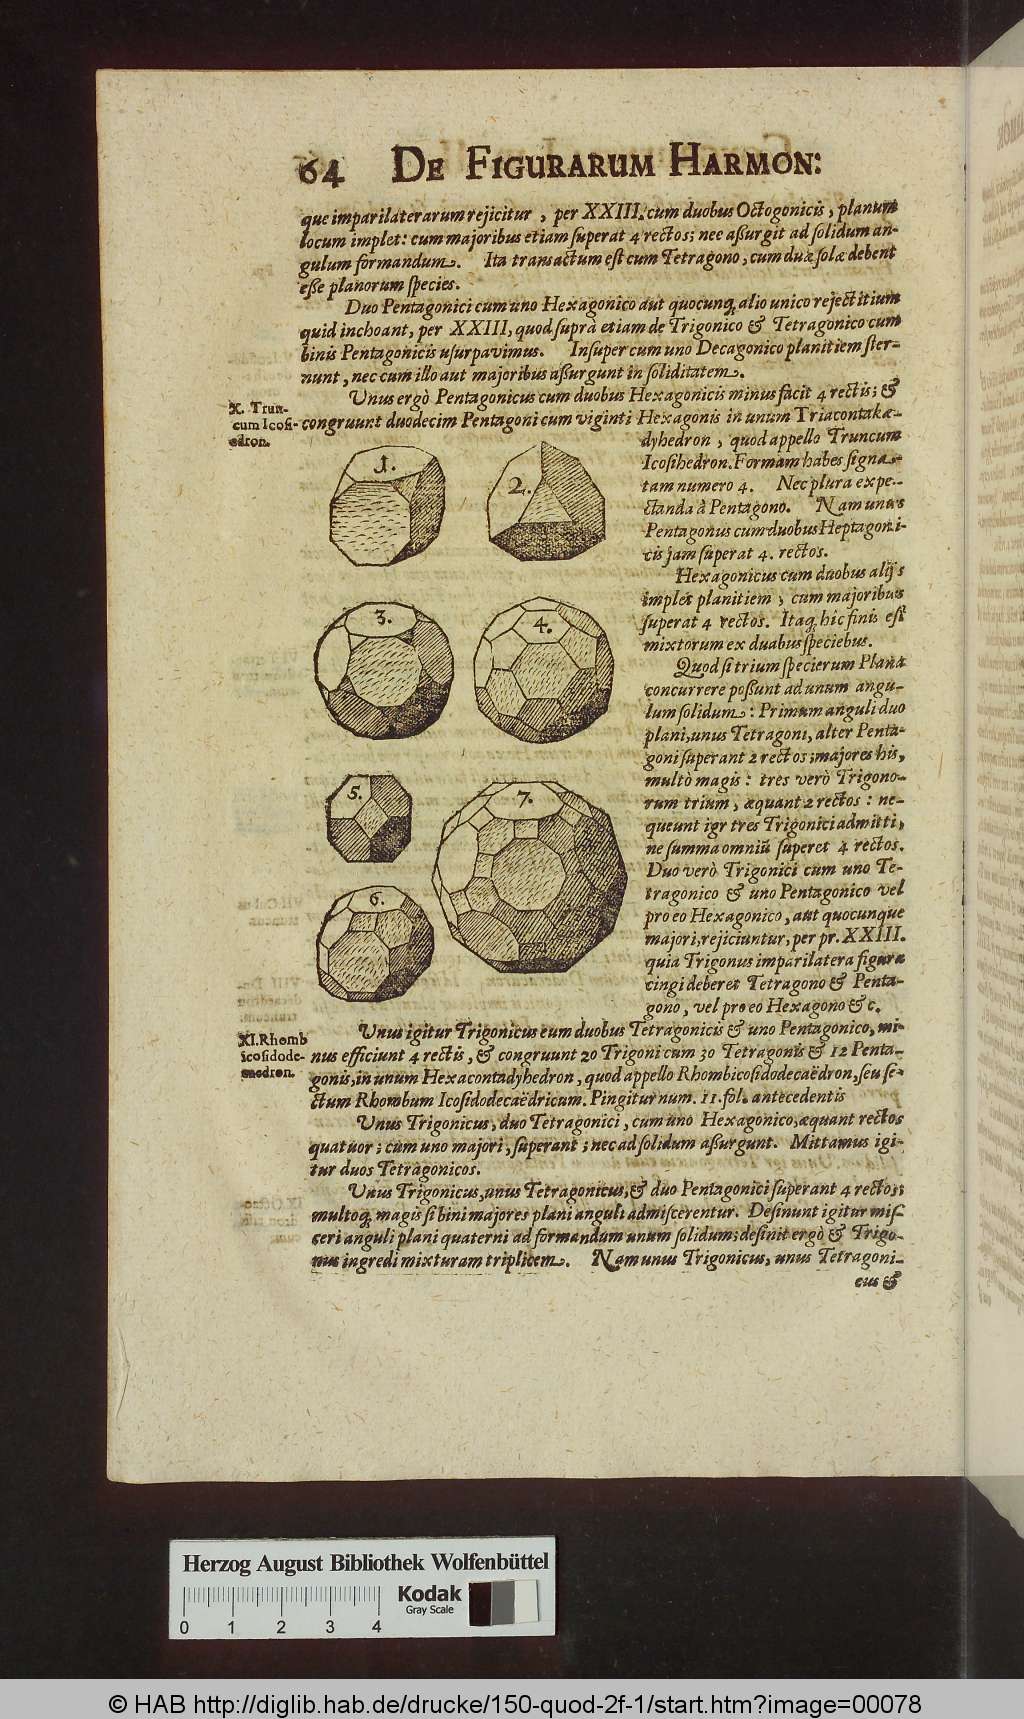 64 DE FIGURARUM HARMON:
que imparilaterarum rejicitur, per XXIII. cum duobus Octogonicis, planum
locum implet: cum majoribus etiam superat 4 rectos; nec aßurgit ad solidum an-
gulum formandum. Ita transactum est cum Tetragono, cum duæ solæ debent
eße planorum species.
Duo Pentagonici cum uno Hexagonico aut quocunq; alio unico rejectitium
quid inchoant, per XXIII, quod suprà etiam de Trigonico & Tetragonico cum
binis Pentagonicis usurpavimus. Insuper cum uno Decagonico planitiem ster-
nunt, nec cum illo aut majoribus aßurgunt in soliditatem.
X. Trun-
cum Icosi-
edron.
Unus ergò Pentagonicus cum duobus Hexagonicis minus facit 4 rectis; &
congruunt duodecim Pentagoni cum viginti Hexagonis in unum Triacontakæ-
dyhedron, quod appello Truncum
Icosihedron. Formam habes signa-
tam numero 4. Nec plura expe-
ctanda à Pentagono. Nam unus
Pentagonus cum duobus Heptagoni-
cis jam superat 4. rectos.
Hexagonicus cum duobus alijs
implet planitiem, cum majoribus
superat 4 rectos. Itaq; hic finis est
mixtorum ex duabus speciebus.
Quod si trium specierum Plana
concurrere poßunt ad unum angu-
lum solidum: Primum anguli duo
plani, unus Tetragoni, alter Penta-
goni superant 2 rectos; majores his,
multò magis: tres verò Trigono-
rum trium, æquant 2 rectos: ne-
queunt igr tres Trigonici admitti,
ne summa omniū superet 4 rectos.
Duo verò Trigonici cum uno Te-
tragonico & uno Pentagonico vel
pro eo Hexagonico, aut quocunque
majori, rejiciuntur, per pr. XXIII.
quia Trigonus imparilatera figura
cingi deberet Tetragono & Penta-
gono, vel pro eo Hexagono &c.
1.
2.
3.
4.
5.
7.
6.
XI. Rhomb
icosidode-
caedron.
Unus igitur Trigonicus cum duobus Tetragonicis & uno Pentagonico, mi-
nus efficiunt 4 rectis, & congruunt 20 Trigoni cum 30 Tetragonis & 12 Penta-
gonis, in unum Hexacontadyhedron, quod appello Rhombicosidodecaëdron, seu se-
ctum Rhombum Icosidodecaëdricum. Pingitur num. 11. fol. antecedentis
Unus Trigonicus, duo Tetragonici, cum uno Hexagonico, æquant rectos
quatuor; cum uno majori, superant; nec ad solidum aßurgunt. Mittamus igi-
tur duos Tetragonicos.
Unus Trigonicus, unus Tetragonicus, & duo Pentagonici superant 4 rectos;
multoq; magis si bini majores plani anguli admiscerentur. Desinunt igitur mis-
ceri anguli plani quaterni ad formandum unum solidum; desinit ergò & Trigo-
nus ingredi mixturam triplicem. Nam unus Trigonicus, unus Tetragoni-
cus &
Herzog August Bibliothek Wolfenbüttel
Kodak
Gray Scale
0 1 2 3 4
© HAB http://diglib.hab.de/drucke/150-quod-2f-1/start.htm?image=00078